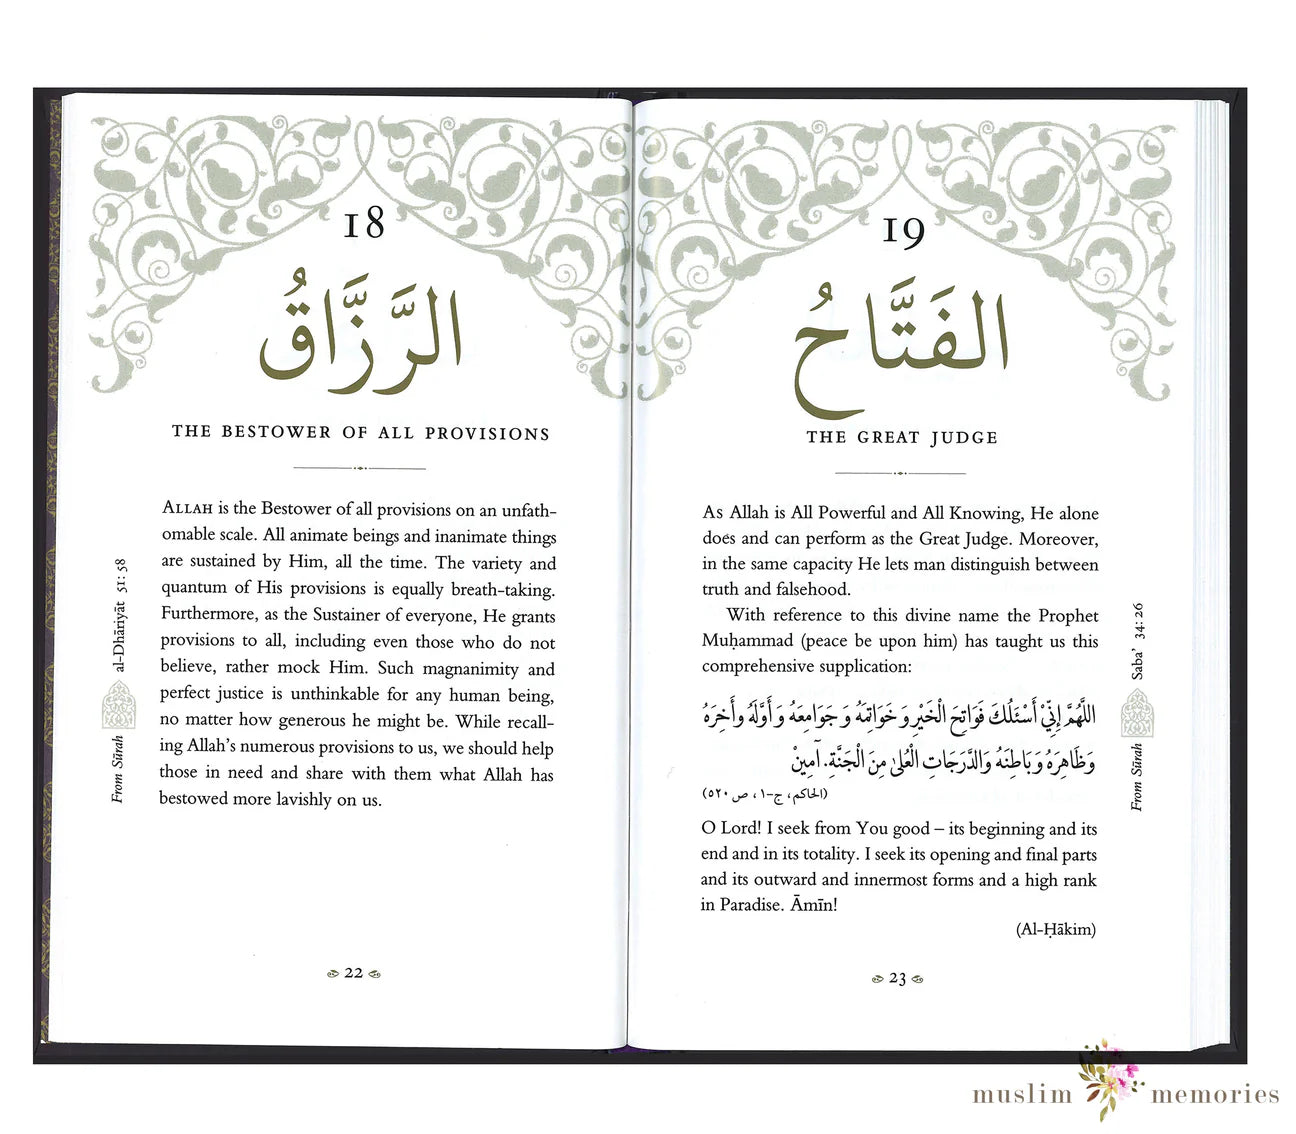 18
الرَّزَّاقُ
THE BESTOWER OF ALL PROVISIONS
ALLAH is the Bestower of all provisions on an unfath-
omable scale. All animate beings and inanimate things
are sustained by Him, all the time. The variety and
quantum of His provisions is equally breath-taking.
Furthermore, as the Sustainer of everyone, He grants
provisions to all, including even those who do not
believe, rather mock Him. Such magnanimity and
perfect justice is unthinkable for any human being,
no matter how generous he might be. While recall-
ing Allah's numerous provisions to us, we should help
those in need and share with them what Allah has
bestowed more lavishly on us.
From Sūrah al-Dhāriyāt 51: 58
22
19
الفَتَّاحُ
THE GREAT JUDGE
As Allah is All Powerful and All Knowing, He alone
does and can perform as the Great Judge. Moreover,
in the same capacity He lets man distinguish between
truth and falsehood.
With reference to this divine name the Prophet
Muḥammad (peace be upon him) has taught us this
comprehensive supplication:
اللَّهُمَّ إِنِّيْ أَسْئَلُكَ فَوَاتِحَ الْخَيْرِ وَ خَوَاتِمَهُ وَ جَوَامِعَهُ وَ أَوَّلَهُ وأَخِرَهُ
وَظَاهِرَهُ وَبَاطِنَهُ وَالدَّرَجَاتِ الْعُلىٰ مِنَ الْجَنَّةِ. آمِيْنْ
(الحاكم، ج-١، ص ٥٢٠)
O Lord! I seek from You good – its beginning and its
end and in its totality. I seek its opening and final parts
and its outward and innermost forms and a high rank
in Paradise. Āmīn!
(Al-Ḥākim)
From Sūrah Saba' 34: 26
23
muslim memories